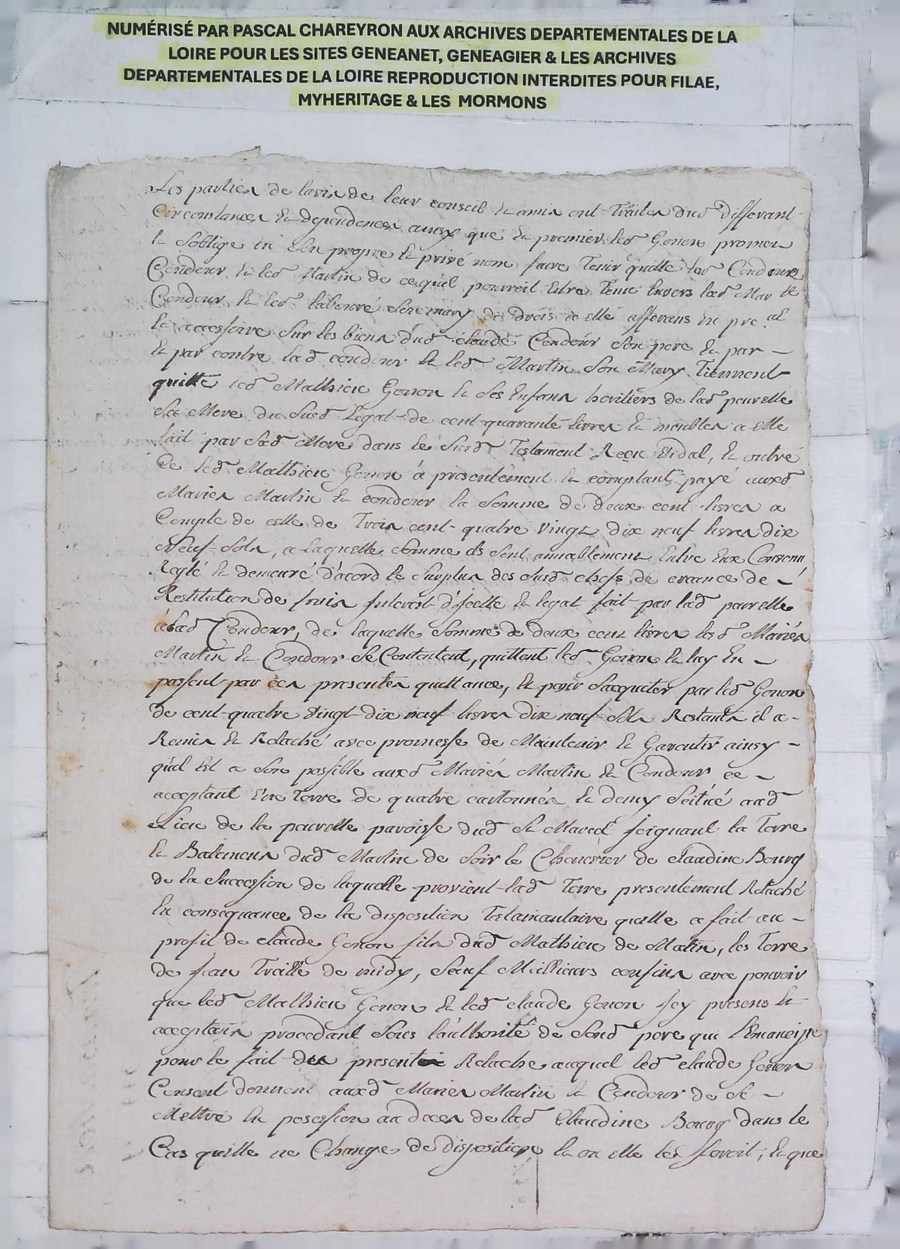 NUMÉRISÉ PAR PASCAL CHAREYRON AUX ARCHIVES DEPARTEMENTALES DE LA
LOIRE POUR LES SITES GENEANET, GENEAGIER & LES ARCHIVES
DEPARTEMENTALES DE LA LOIRE REPRODUCTION INTERDITES POUR FILAE,
MYHERITAGE & LES MORMONS
Les parties de lavis de leur conseil et amis ont traités dud differant
Circonstances et dependences ainsy que le premier led Gonon promet
et soblige en son propre et privé nom faire tenir quitte lad Condour
Condour et led Martin de ce quil pourroit Estre tenu Envers lad Mar
Condour et led son mary des droits a elle afferans en
et accessoire sur les biens dud claude Condour son pere et par
Et par contre lad condour et led Martin son Mary Tiennent
quitte led Mathieu Gonon et ses Enfans heritiers de lad pauvelle
sa Mere du susd Legat de cent quarante livres et meubles a elle
fait par sad Mere dans le susd Testament Reçu Vidal, et outre
Ce led Mathieu Gonon à presentement et comptant payé auxd
Mariés Martin et condour la somme de deux cent livres a
Compte de celle de Trois cent quatre vingt dix neuf livres dix
Neuf sols, a laquelle somme ils sont amiablement Entre Eux Convenu
Reglé et demeuré d'acord le surplus des susd chefs de
Restitution de fruis Interest d'icelle et legat fait par lad pauvelle
à lad Condour, de laquelle somme de deux cent livres les Mariés
Martin et Condour se Contentent, quittent led Gonon et luy En
passent par ces presentes quittance, Et pour sacquiter par led Gonon
de cent quatre vingt dix neuf livres dix neuf sols Restants il a
Remis et Relaché avec promesse de Maintenir et Garentir ainsy
quil Est a son possible auxd Mariés Martin et Condour ce
acceptant Une Terre de quatre cartonnés et demy scitué aud
Lieu de la pauvelle paroisse dud St Marcel joignant la Terre
et Batimens dud Martin de soir le Chenevier de claudine Bourg
de la succession de laquelle provient lad Terre presentement Relaché
En consequance de la disposition Testamantaire quelle a fait au
profit de claude Gonon fils dud Mathieu de Matin, les Terre
de Jean de midy, sauf Meillieurs confins avec pouvoir
que led Mathieu Gonon et led claude Gonon Icy present et
acceptan procedant sous lauthorité de sond pere qui l'Emancipe
pour le fait des presente Relache auquel led claude Gonon
Consent donnent auxd Mariés Martin et Condour de se
Mettre en posession au deces de lad Claudine Bourg dans le
Cas quelle ne Change de disposition et ou elle les feroit, et que